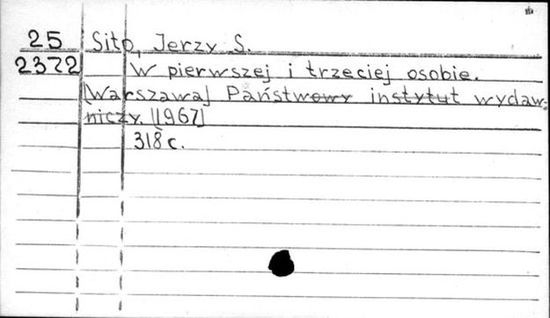 25 Sito, Jerzy S.
2372 W pierwszej i trzeciej osobie.
[Warszawa] Państwowy instytut wydaw-
niczy. [1967]
318 c.